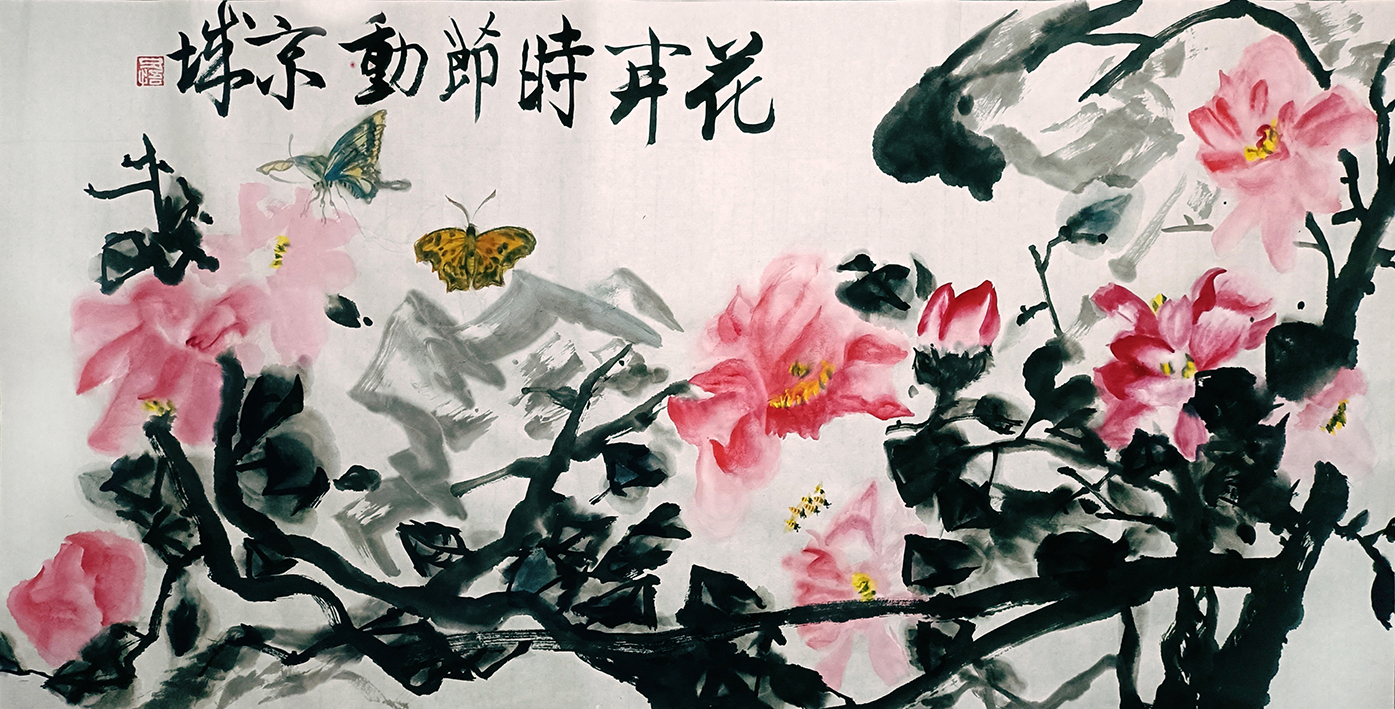 花開時節動京城